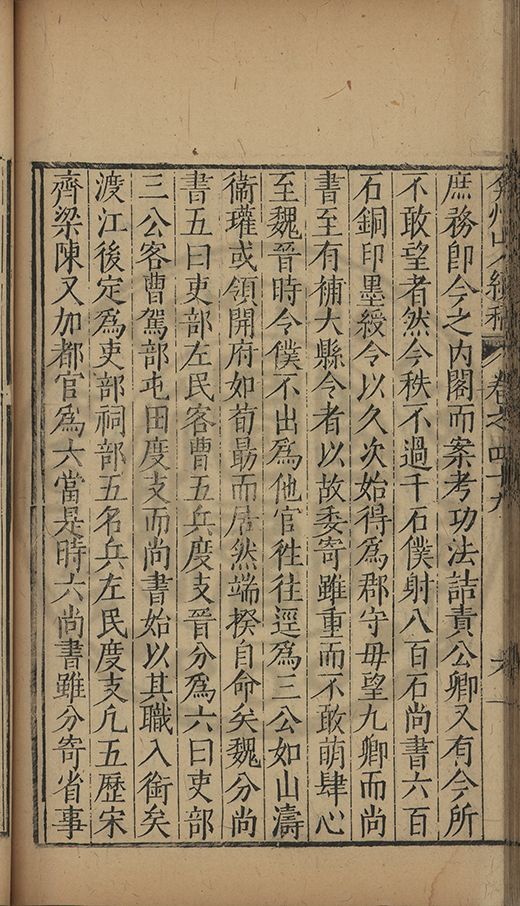 弇州山人續稿 卷之四十九 六
庶務即今之內閣而案考功法詰責公卿又有今所
不敢望者然今秩不過千石僕射八百石尚書六百
石銅印墨綬令以久次始得爲郡守毋望九卿而尚
書至有補大縣令者以故委寄雖重而不敢萌肆心
至魏晉時令僕不出爲他官徃往逕爲三公如山濤
衞瓘或領開府如荀勗而居然端揆自命矣魏分尚
書五曰吏部左民客曹五兵度支晉分爲六曰吏部
三公客曹駕部屯田度支而尚書始以其職入銜矣
渡江後定爲吏部祠部五名兵左民度支凢五歷宋
齊梁陳又加都官為六當是時六尚書雖分寄省事